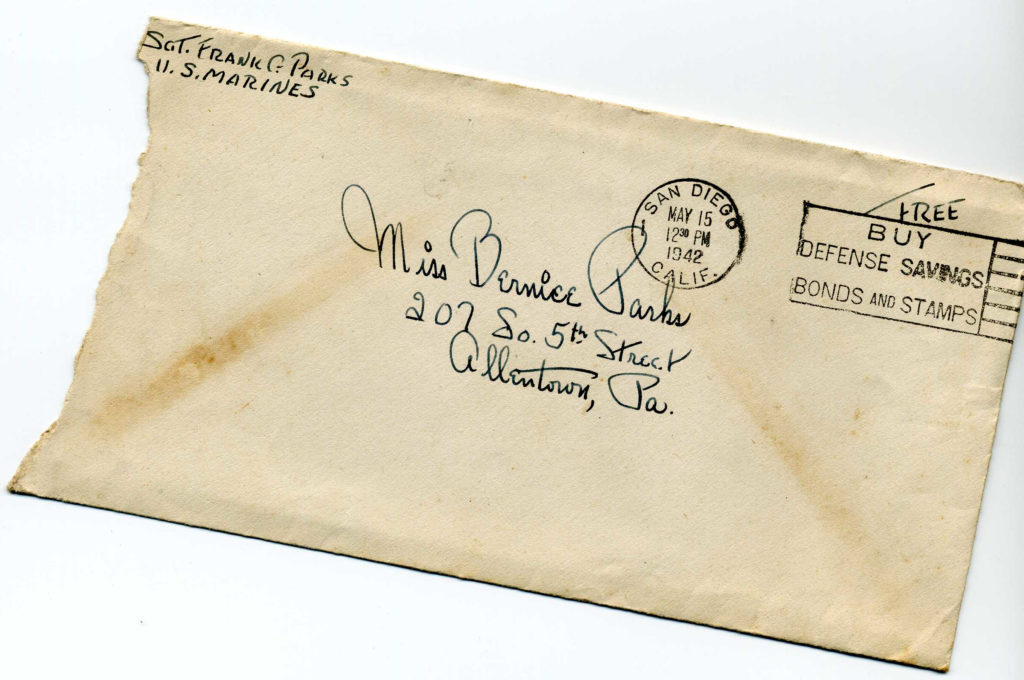 Sgt. Frank C. Parks
U.S. Marines
SAN DIEGO
MAY 15
12 30 PM
1942
CALIF.
1
FREE
BUY
DEFENSE SAVINGS
BONDS AND STAMPS
Miss Bernice Parks
207 So. 5th Street
Allentown, Pa.